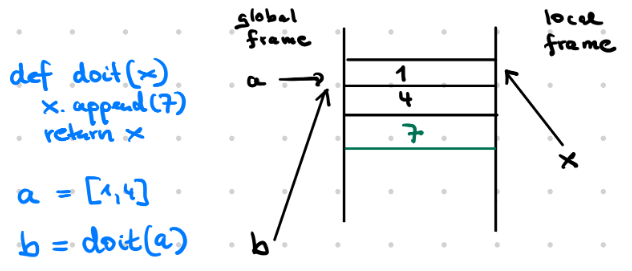 def doit(x)
x.append(7)
return x
a = [1,4]
b = doit(a)
global
frame
a
1
4
7
b
local
frame
x